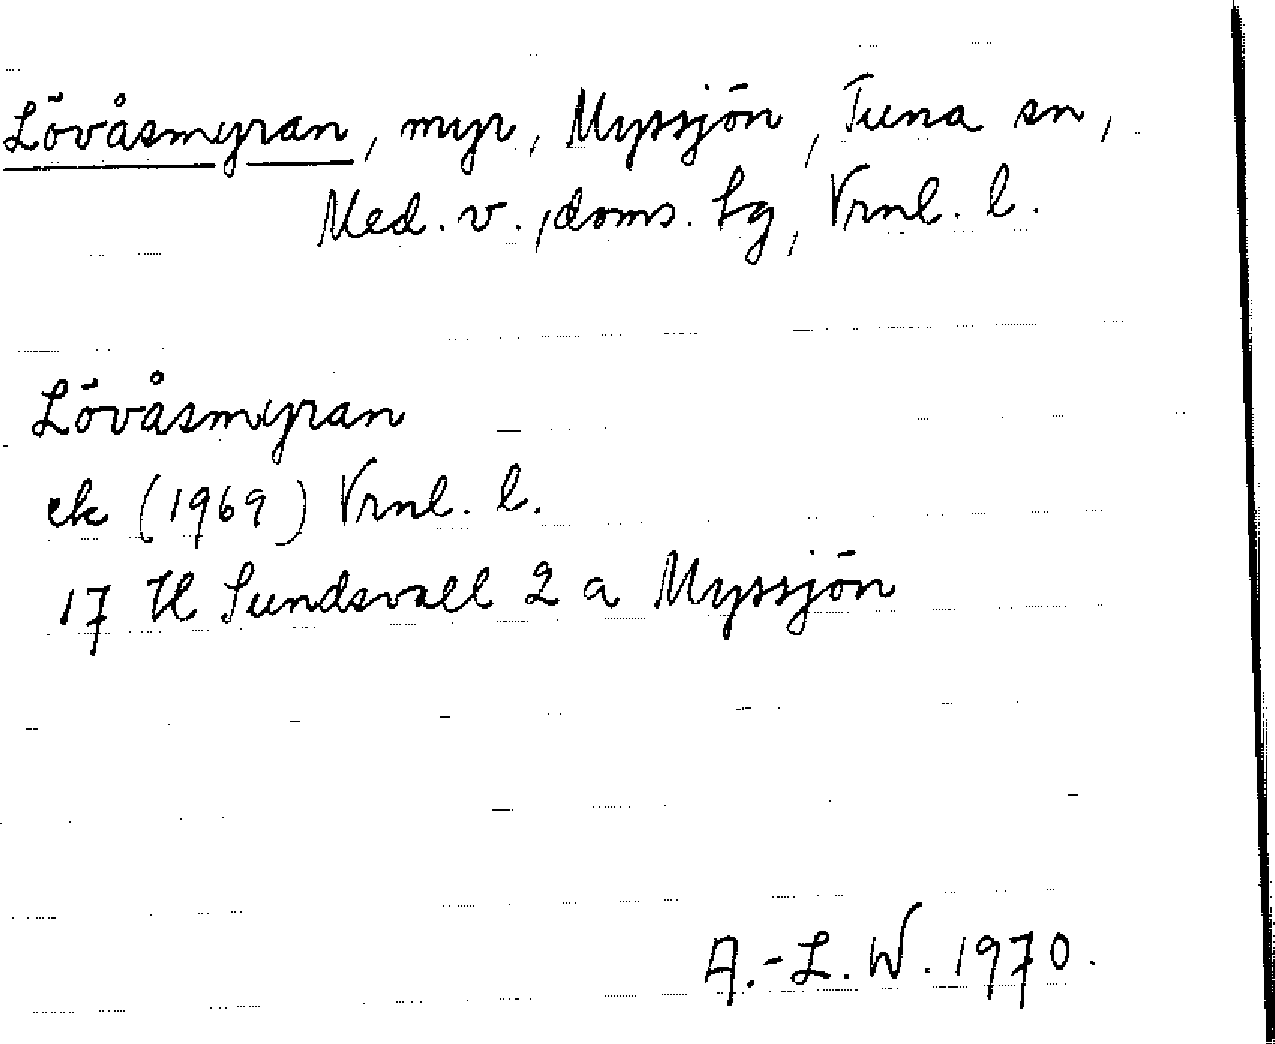 Lövåsmyran, myr, Myssjön, Tuna sn,
Med. v., doms. hg, Vrnl. l.
Lövåsmyran
ek (1969) Vrnl. l.
17 H Sundsvall 2 a Myssjön
A.-L. W. 1970.